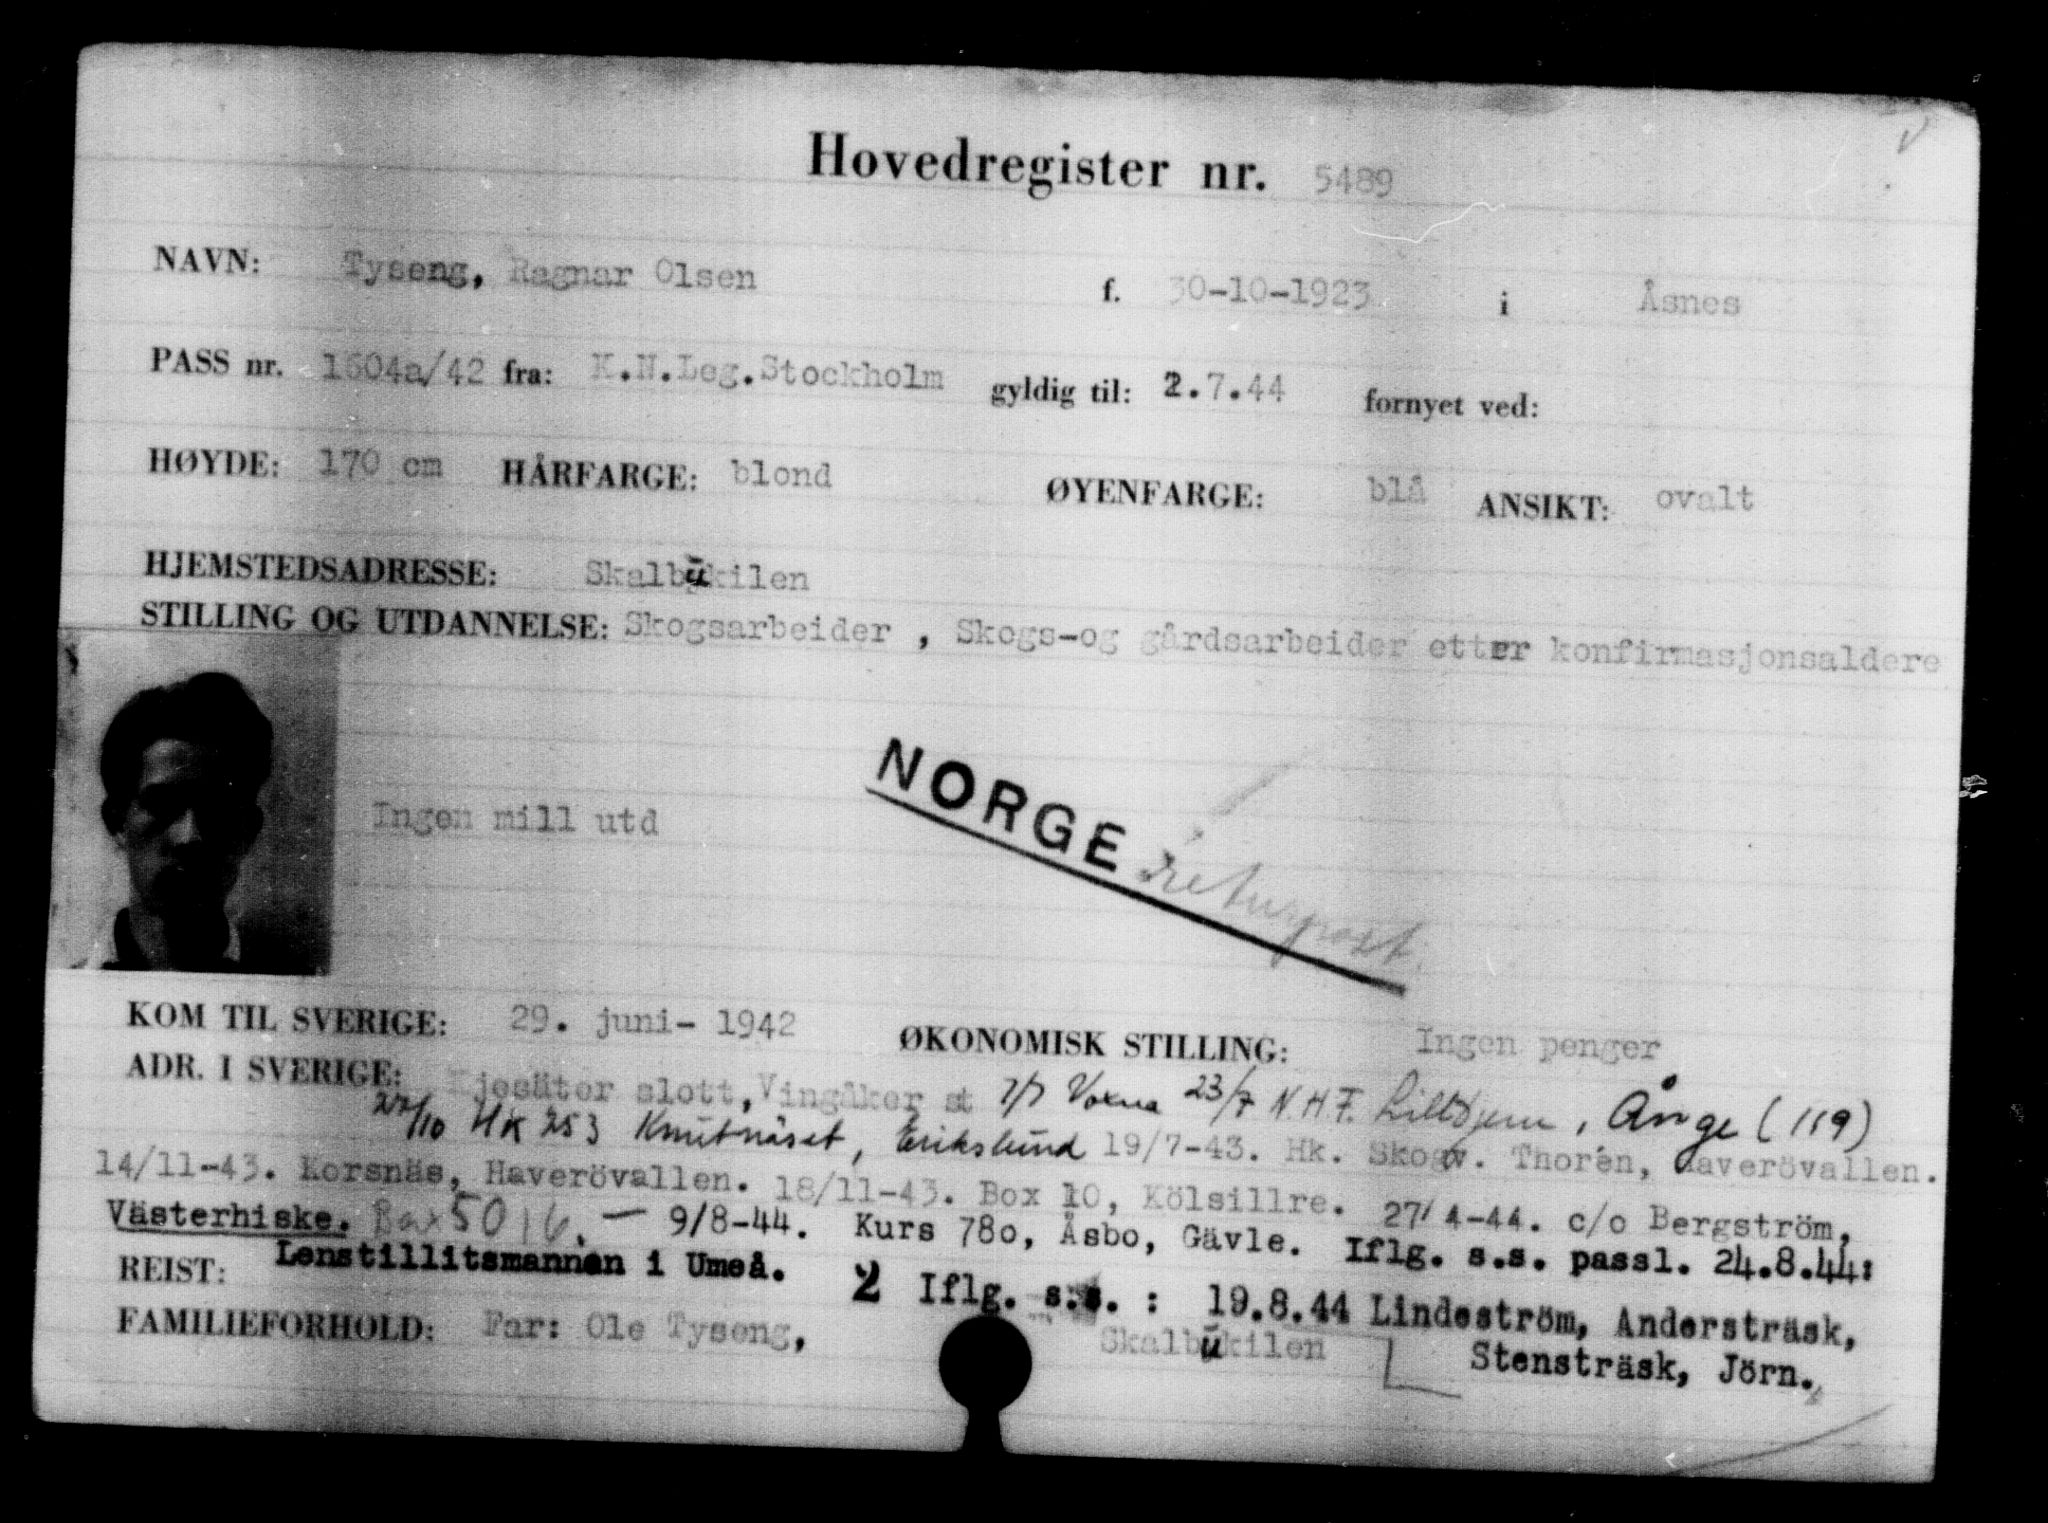 Hovedregister nr. 5489
NAVN: Tyseng, Ragnar Olsen f. 30-10-1923 i Åsnes
PASS nr. 1604a/42 fra: K.N.Leg.Stockholm gyldig til: 2.7.44 fornyet ved:
HØYDE: 170 cm HÅRFARGE: blond ØYENFARGE: blå ANSIKT: ovalt
HJEMSTEDSADRESSE: Skalbukilen
STILLING OG UTDANNELSE: Skogsarbeider , Skogs-og gårdsarbeider etter konfirmasjonsaldere
Ingen mill utd
NORGE
returpost.
KOM TIL SVERIGE: 29. juni- 1942 ØKONOMISK STILLING: Ingen penger
ADR. I SVERIGE: Kjesäter slott, Vingåker st 7/7 Voxna 23/7 N.H.F. Ånge (119)
27/10 Hk 253 Knutnäset, Erikslund 19/7-43. Hk. Skogv. Thorén, Haverövallen.
14/11-43. Korsnäs, Haverövallen. 18/11-43. Box 10, Kölsillre. 27/4-44. c/o Bergström,
Västerhiske. Box 5016. — 9/8-44. Kurs 780, Åsbo, Gävle. Iflg. s.s. passl. 24.8.44:
REIST: Lenstillitsmannen i Umeå. 2 Iflg. s.s. : 19.8.44 Lindeström, Andersträsk,
FAMILIEFORHOLD: Far: Ole Tyseng, Skalbukilen Stensträsk, Jörn.